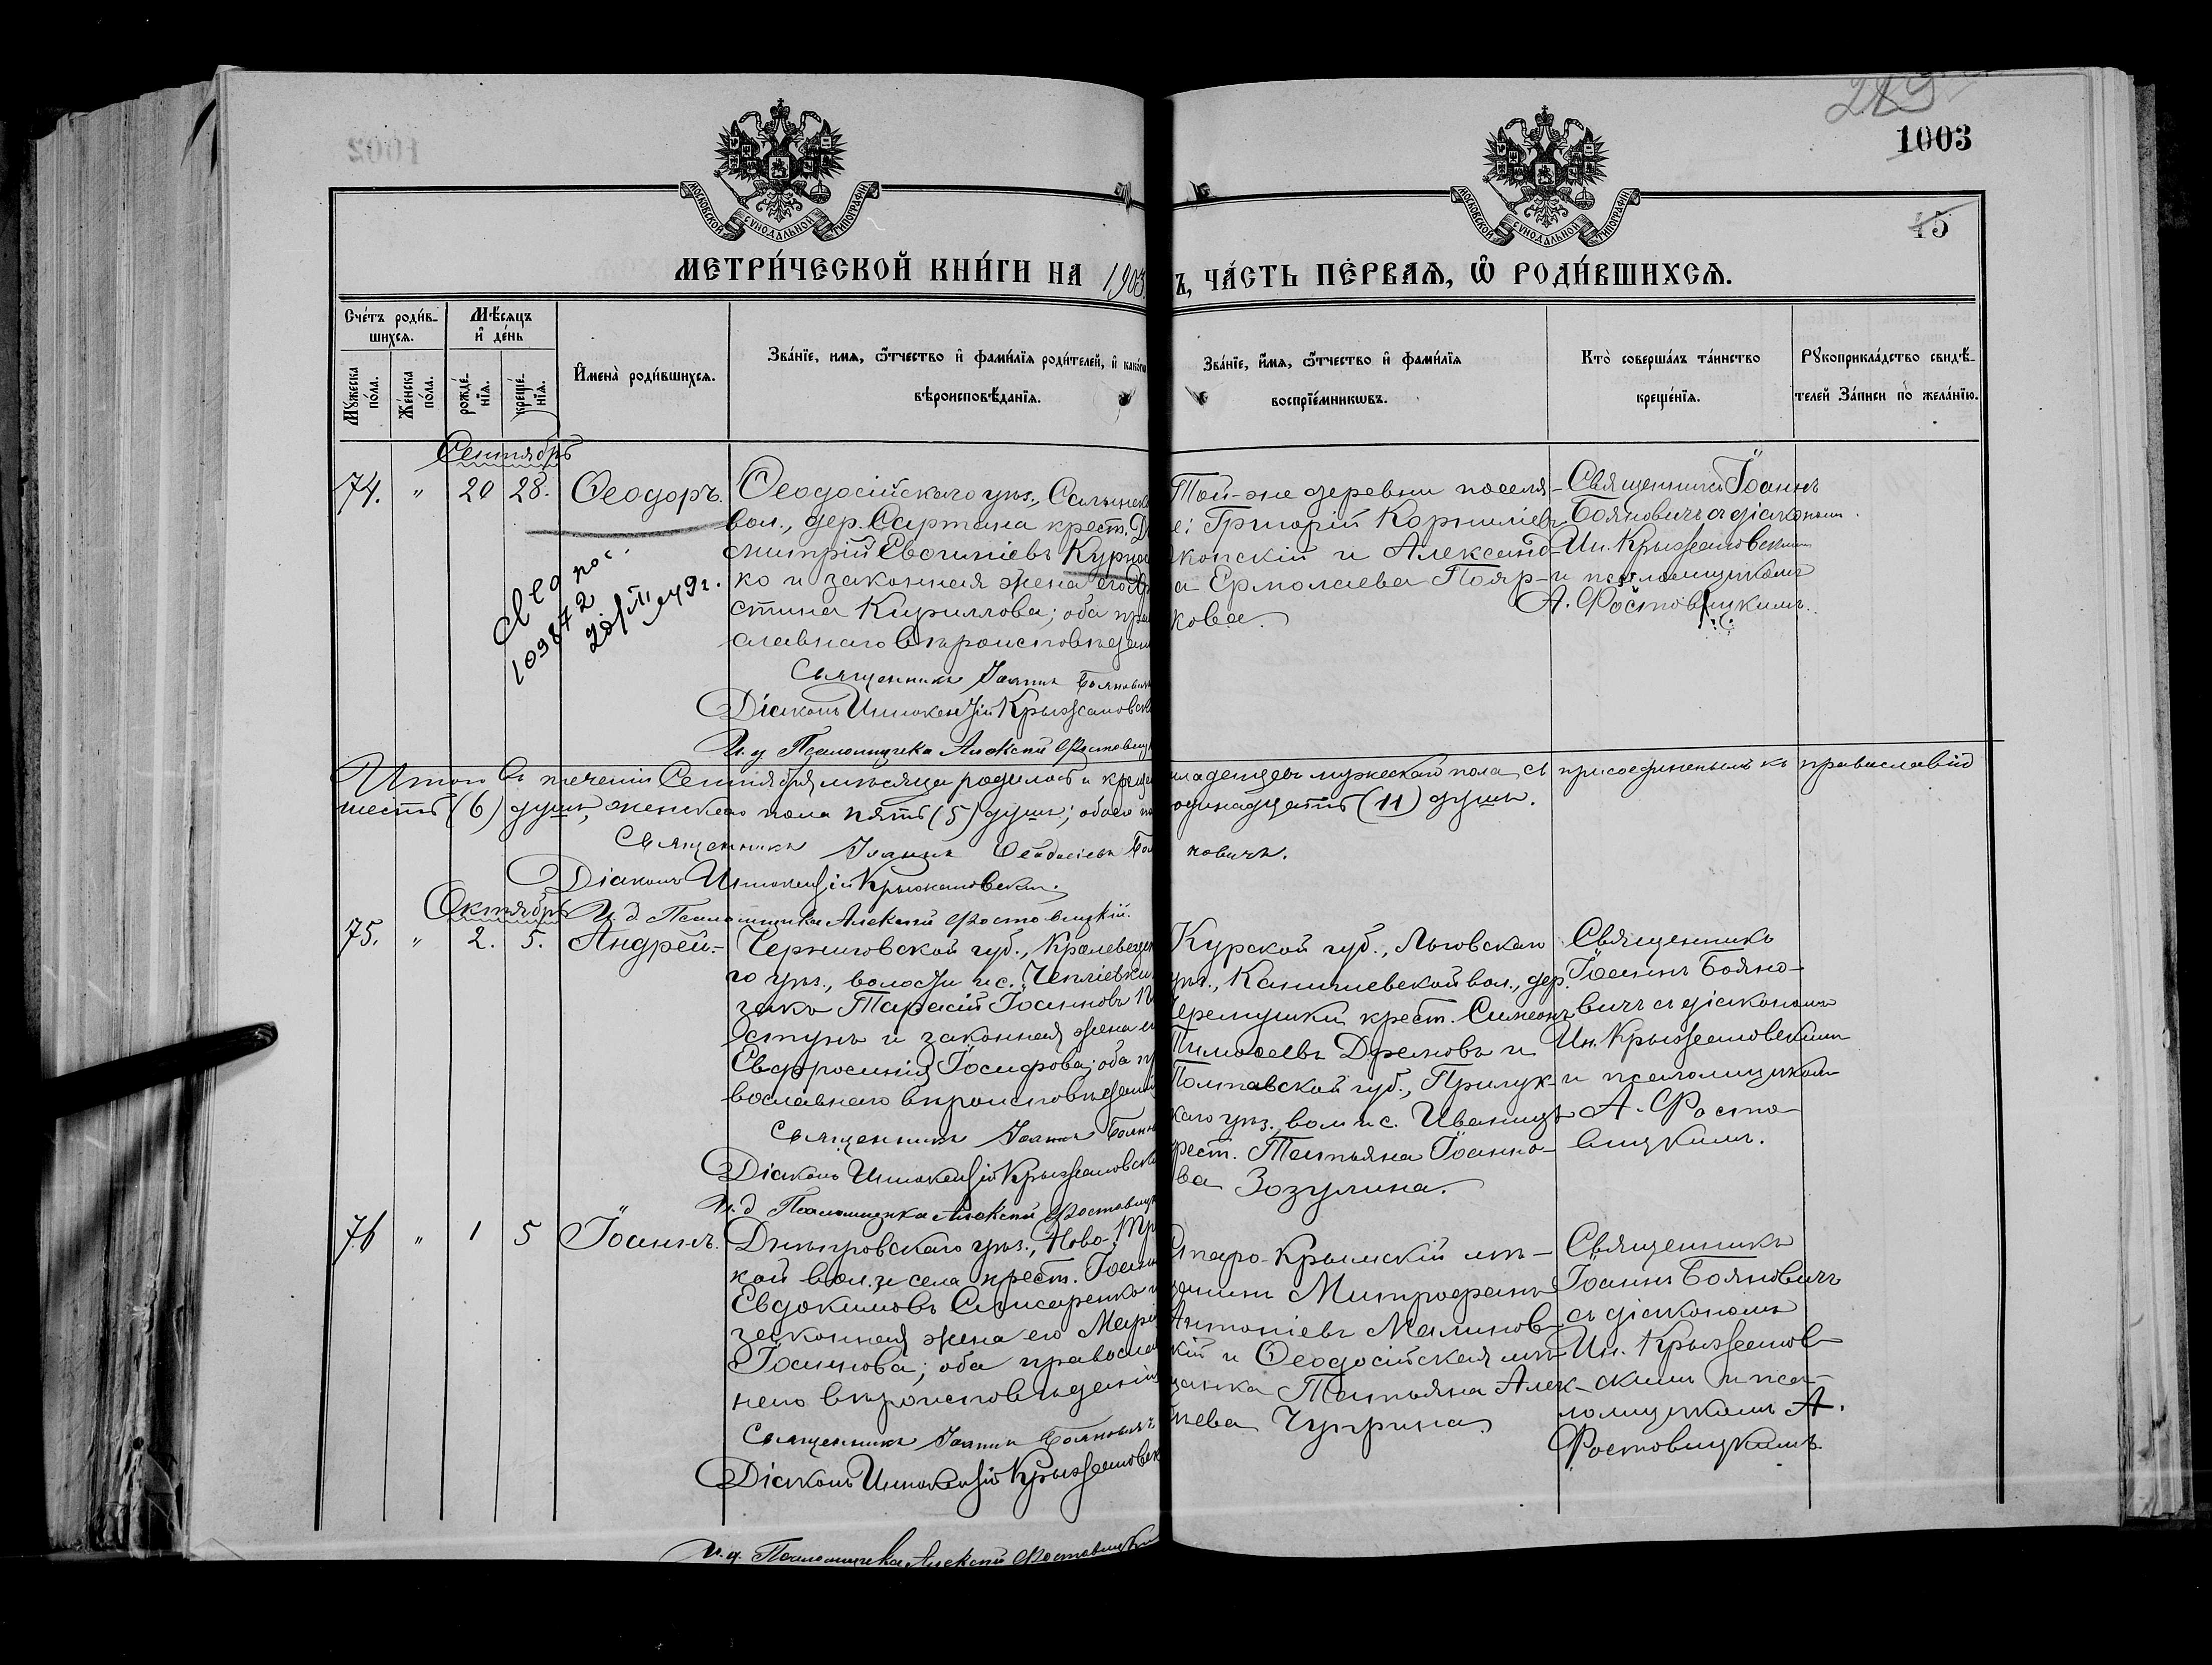 1002
289
1003
МОСКОВСКОЙ СѴНОДАЛЬНОЙ ТИПОГРАФІИ
МОСКОВСКОЙ СѴНОДАЛЬНОЙ ТИПОГРАФІИ
15
МЕТРИ́ЧЕСКОЙ КНИ́ГИ НА 1903 Ъ, ЧА́СТЬ ПЕ́РВАѦ, Ѿ РОДИ́ВШИХСѦ.
Сче́тъ роди́в-
шихсѧ.
Мѣ́сѧцъ
и҆ де́нь
Мꙋжеска по́ла.
Же́нска по́ла.
рожде́-
нїѧ.
креще́-
нїѧ.
И҆мена̀ роди́вшихсѧ.
Зва́нїе, имѧ, ѻ҆́тчество и҆ фами́лїѧ роди́телей, и҆ како́гѡ
вѣроисповѣ́данїѧ.
Зва́нїе, и҆́мѧ, ѻ҆́тчество и҆ фами́лїѧ
воспрїе́мникѡвъ.
Кто̀ соверша́лъ та́инство
креще́нїѧ.
Рꙋкоприкла́дство свидѣ́-
телей За́писи по̀ жела́нїю.
Сентябрь
74. " 20 28. Ѳеодоръ.
Ѳеодосійскаго уѣз., Салынск
вол., дер. Сартана крест. Ди
митрій Евѳиміевъ Курно
ко и законная жена его
стина Кириллова; оба пра
славнаго вѣроисповѣдан
Священникъ Іоаннъ Боянович
Діаконъ Иннокентій Крыжановск
И. д Псаломщика Алексій Ростовиц
Той-же деревни поселя-
е: Григорій Корниліевъ
копскій и Александ-
а Ермолаева Пояр-
кова.
Священникъ Іоаннъ
Бояновичъ съ діакономъ
Ин. Крыжановскимъ
и псаломщикомъ
А. Ростовицкимъ.
109872
Итого въ теченіи Сентября мѣсяца родилось и креще младенцевъ мужескаго пола съ присоединеннымъ къ православію
шесть (6) душъ, женскаго пола пять (5) душъ; обоего по одинадцать (11) душъ.
Священникъ Іоаннъ Ѳеодосіевъ Боя новичъ.
Діаконъ Иннокентій Крыжановскій.
И. д Псаломщика Алексій Ростовицкій.
Октябрь
75. " 2. 5. Андрей.-
Черниговской губ., Кролевецк
го уѣз., волости и с. Чепліевки
закъ Тарасій Іоанновъ
стунъ и законная жена е
Евфросинія Іосифова; оба пр
вославнаго вѣроисповѣдані
Священникъ Іоаннъ Боянов
Діаконъ Иннокентій Крыжановск
И. д Псаломщика Алексій Ростовицк
Курской губ., Льговскаго
уѣз., Канышевской вол., дер.
Черемушки крест. Симеонъ
Тимоѳеевъ Дремовъ и
Полтавской губ., Прилук-
каго уѣз., вол. и с. Иваницъ
рест. Татьяна Іоанно-
ва Зозулина.
Священникъ
Іоаннъ Бояно-
вичъ съ діакономъ
Ин. Крыжановскимъ
и псаломщикомъ
А. Росто-
вицкимъ.
76 " 1 5 Іоаннъ.
Днѣпровскаго уѣз., Ново-Тр
кой вол. и села крест. Іоанн
Евдокимовъ Слисаренко и
законная жена его Марі
Іоаннова; оба правосла
наго вѣроисповѣданія
Священникъ Іоаннъ Бояновичъ
Діаконъ Иннокентій Крыжановск
И. д. Псаломщика Алексій Ростовицкі
Старо-Крымскій мѣ-
щанинъ Митрофанъ
Антоніевъ Малинов-
кій и Ѳеодосійская мѣ-
щанка Татьяна Алек-
ѣева Чуприна.
Священникъ
Іоаннъ Бояновичъ
съ діакономъ
Ин. Крыжанов-
скимъ и пса-
ломщикомъ А.
Ростовицкимъ.